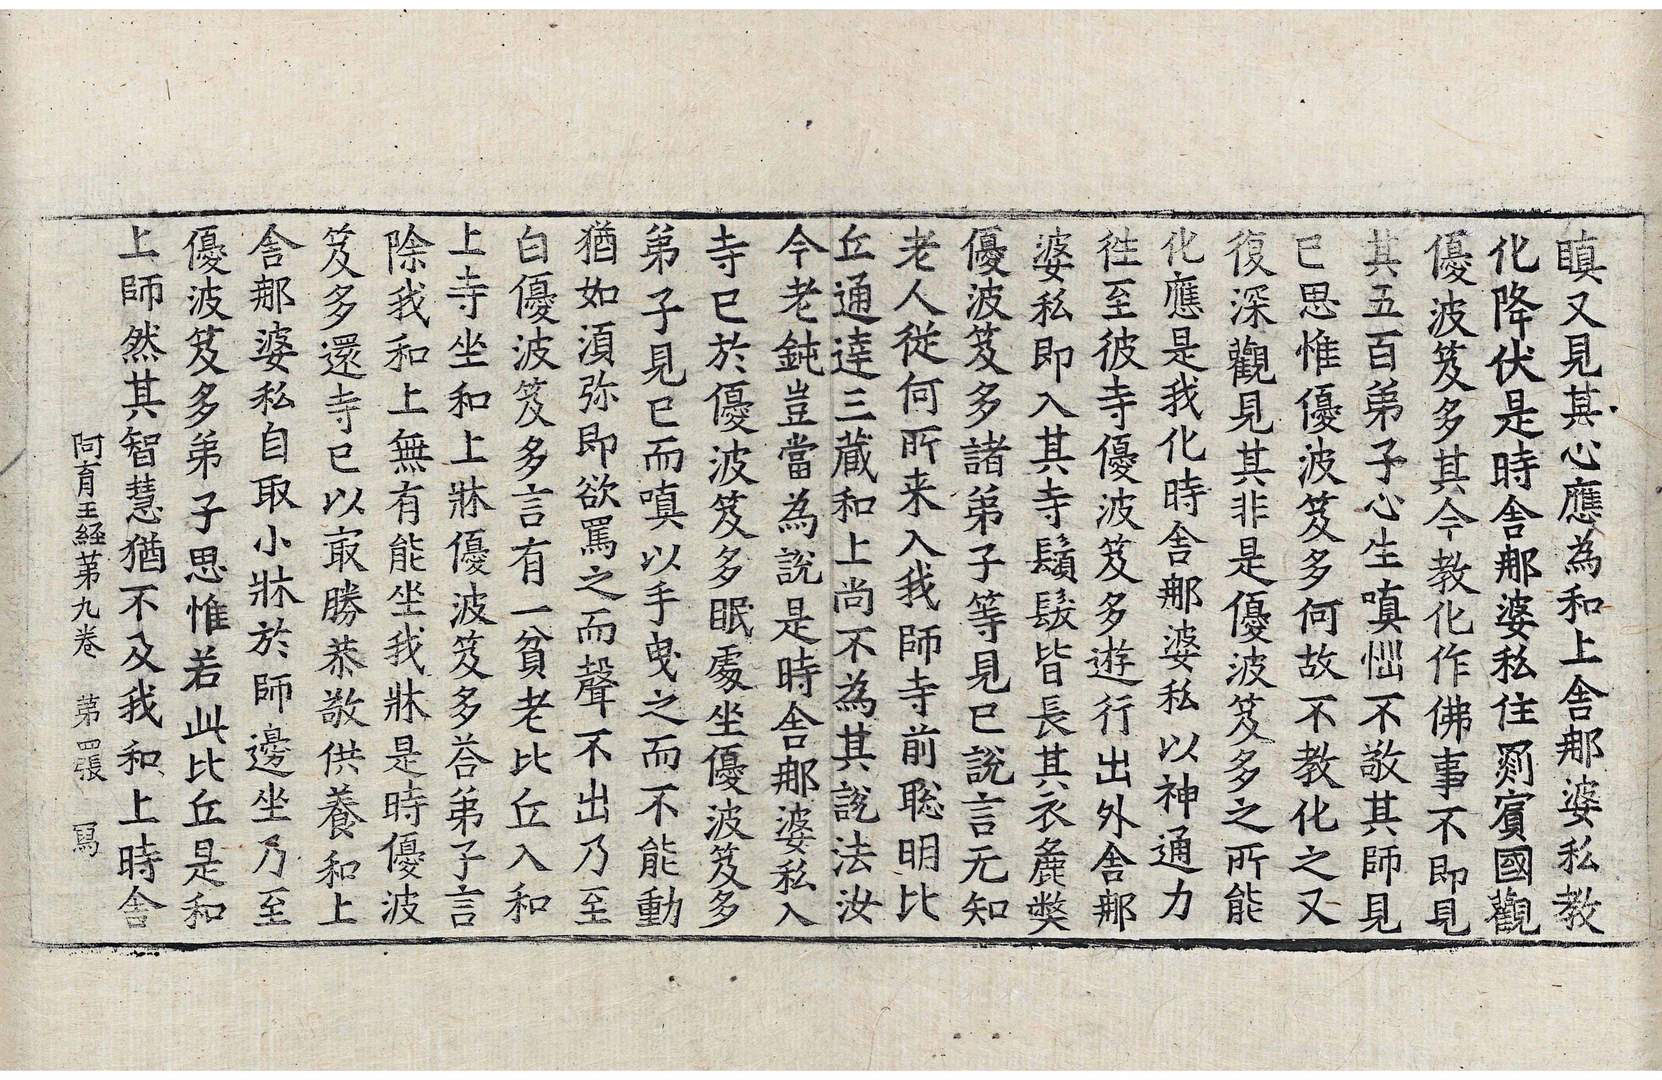 瞋又見其心應為和上舍那婆私教
化降伏是時舍那婆私住罽賓國觀
優波笈多其今教化作佛事不即見
其五百弟子心生嗔㤕不敬其師見
已思惟優波笈多何故不教化之又
復深觀見其非是優波笈多之所能
化應是我化時舍那婆私以神通力
徃至彼寺優波笈多遊行出外舍那
婆私即入其寺鬚髮皆長其衣麁弊
優波笈多諸弟子等見已說言无知
老人從何所来入我師寺前聡明比
丘通達三藏和上尚不為其說法汝
今老鈍豈當為說是時舍那婆私入
寺已於優波笈多眠處坐優波笈多
弟子見已而嗔以手曳之而不能動
猶如湏弥即欲罵之而聲不出乃至
白優波笈多言有一貧老比丘入和
上寺坐和上牀優波笈多荅弟子言
除我和上無有能坐我牀是時優波
笈多還寺已以㝡勝恭敬供養和上
舍那婆私自取小牀於師邊坐乃至
優波笈多弟子思惟若此比丘是和
上師然其智慧猶不及我和上時舍
阿育王經第九卷　第四張　寫